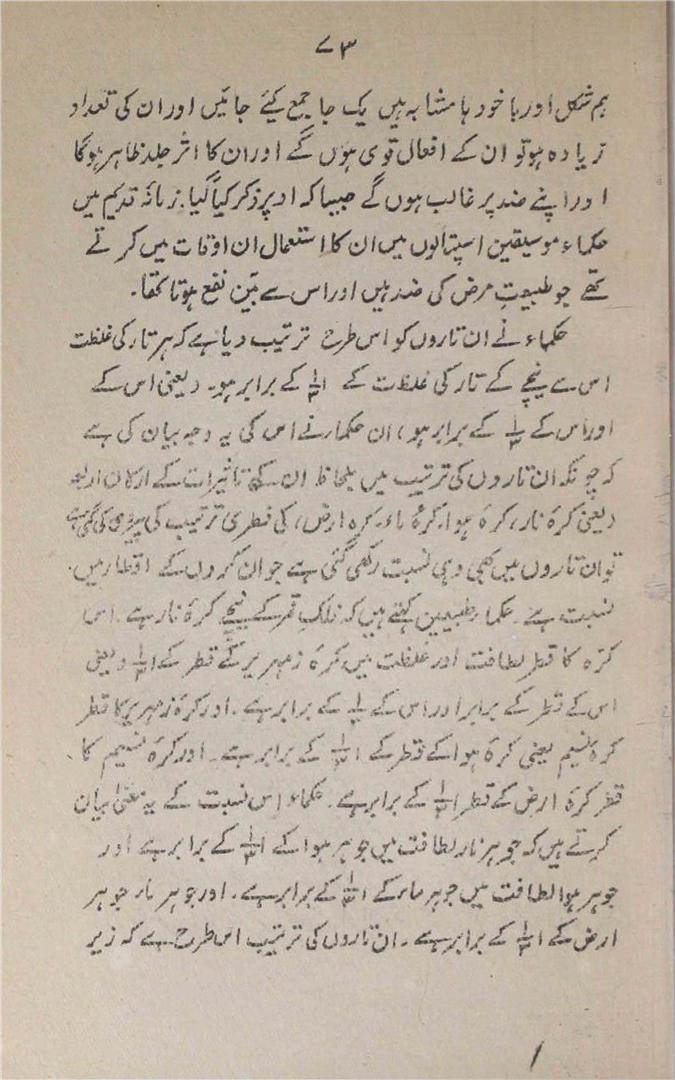 ۷۳
ہم شکل اور باخود ہا مشابہ ہیں یک جا جمع کیئے جائیں اور ان کی تعداد
زیادہ ہو تو ان کے افعال قوی ہوں گے اور ان کا اثر جلد ظاہر ہوگا
اور اپنے ضد پر غالب ہوں گے جیسا کہ اوپر ذکر کیا گیا۔ زمانۂ قدیم میں
حکماء موسیقین اسپتالوں میں ان کا استعمال ان اوقات میں کرتے
تھے جو طبیعتِ مرض کی ضد ہیں اور اس سے بیّن نفع ہوتا تھا۔
حکماء نے ان تاروں کو اس طرح ترتیب دیا ہے کہ ہر تار کی غلظت
اس سے نیچے کے تار کی غلظت کے ۱ ۱/۳ کے برابر ہو۔ (یعنی اس کے
اور اس کے ۱/۳ کے برابر ہو) ان حکماء نے اس کی یہ وجہ بیان کی ہے
کہ چونکہ ان تاروں کی ترتیب میں بلحاظ ان کی تاثیرات کے ارکان اربعہ
(یعنی کرۂ نار، کرۂ ہوا، کرۂ ماء، کرہ ارض) کی فطری ترتیب کی پیروی کی گئی ہے
تو ان تاروں میں بھی وہی نسبت رکھی گئی ہے جو ان کروں کے اقطار میں
نسبت ہے۔ حکماء طبیعین کہتے ہیں کہ فلک قمر کے نیچے کرۂ نار ہے۔ اس
کرّہ کا قطر لطافت اور غلظت میں کرۂ زمہریر کے قطر کے ۱ ۱/۳ (یعنی
اس کے قطر کے برابر اور اس کے ۱/۳ کے برابر ہے۔ اور کرۂ زمہریر کا قطر
کرۂ نسیم یعنی کرۂ ہوا کے قطر کے ۱ ۱/۳ کے برابر ہے۔ اور کرۂ نسیم کا
قطر کرۂ ارض کے قطر ۱ ۱/۳ کے برابر ہے۔ حکماء اس نسبت کے یہ معنی بیان
کرتے ہیں کہ جوہر نار لطافت میں جوہر ہوا کے ۱ ۱/۳ کے برابر ہے اور
جوہر ہوا لطافت میں جوہر ماء کے ۱ ۱/۳ کے برابر ہے۔ اور جوہر جوہر
ارض کے ۱ ۱/۳ کے برابر ہے۔ ان تاروں کی ترتیب اس طرح ہے کہ زیر